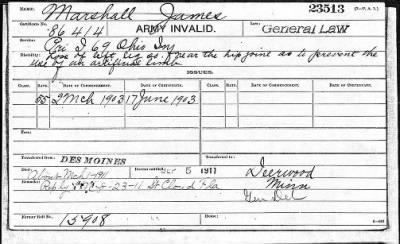 NAME: Marshall James 23513
CERTIFICATE No.: 86414 ARMY INVALID. General Law
Pri I 69 Ohio Inf
Disability: Loss of left leg so near the hip joint as to prevent the
use of an artificial limb
ISSUES.
CLASS. RATE. DATE OF COMMENCEMENT. DATE OF CERTIFICATE. CLASS. RATE. DATE OF COMMENCEMENT. DATE OF CERTIFICATE.
55 2 Mch 1903 17 June 1903
Transferred from DES MOINES 5 1911 Deerwood
About Mch 1-1911 Minn
23-11 St Cloud Fla Gen Del
Former Roll No. 15908